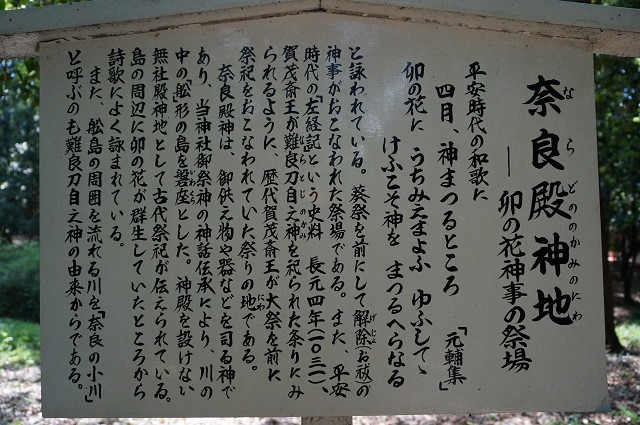 奈良殿神地
ならどののかみのにわ
― 卯の花神事の祭場
平安時代の和歌に
四月、神まつるところ 「元輔集」
卯の花に うちみえまよふ ゆふしてゝ
けふこそ神を まつるへらなる
と詠われている。葵祭を前にして解除(お祓)の
げじょ
神事がおこなわれた祭場である。また、平安
時代の「左経記」という史料 長元四年(一〇三一)、
賀茂斎王が難良刀自之神を祀られた条りにみ
ならとじのかみ
られるように、歴代賀茂斎王が大祭を前に
祭祀をおこなわれていた祭りの地である。
にわ
奈良殿神は、御供え物や器などを司る神で
あり、当神社御祭神の神話伝承により、川の
中の「舩」形の島を磐座とした。神殿を設けない
いわくら
無社殿神地として古代祭祀が伝えられている。
島の周辺に卯の花が群生していたところから
詩歌によく詠まれている。
また、舩島の周囲を流れる川を「奈良の小川」
と呼ぶのも難良刀自之神の由来からである。